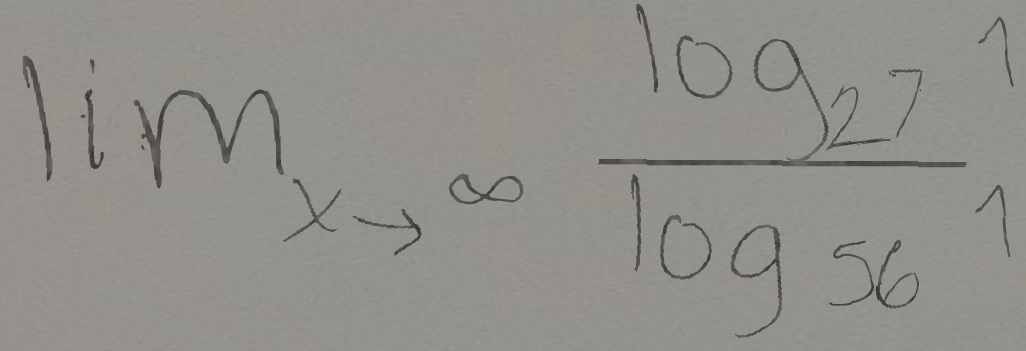 lim x→∞ log 27 1 / log 56 1